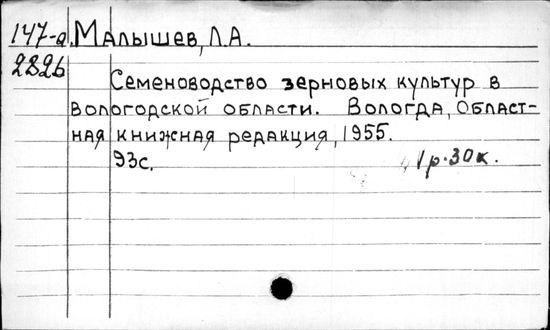 147-а. Малышев, Л.А.
2826
Семеноводство зерновых культур в
Вологодской области. Вологда, Област-
ная книжная редакция, 1955.
93с. 1р.30к.